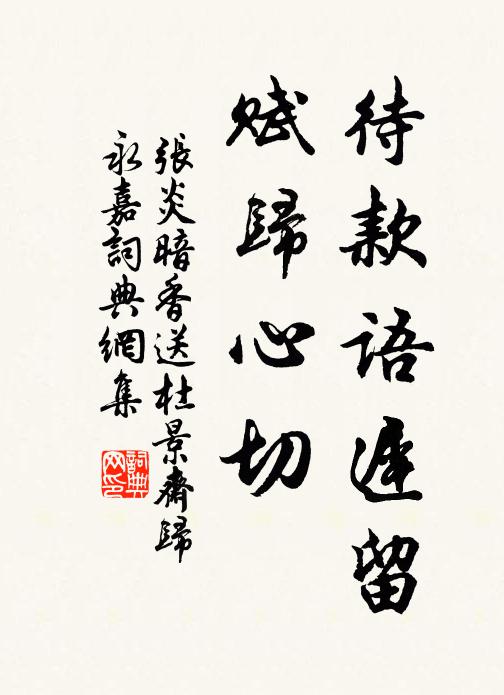 待款語遲留
賦歸心切
張炎暗香送杜景齋歸
永嘉詞典網集
詞典網印